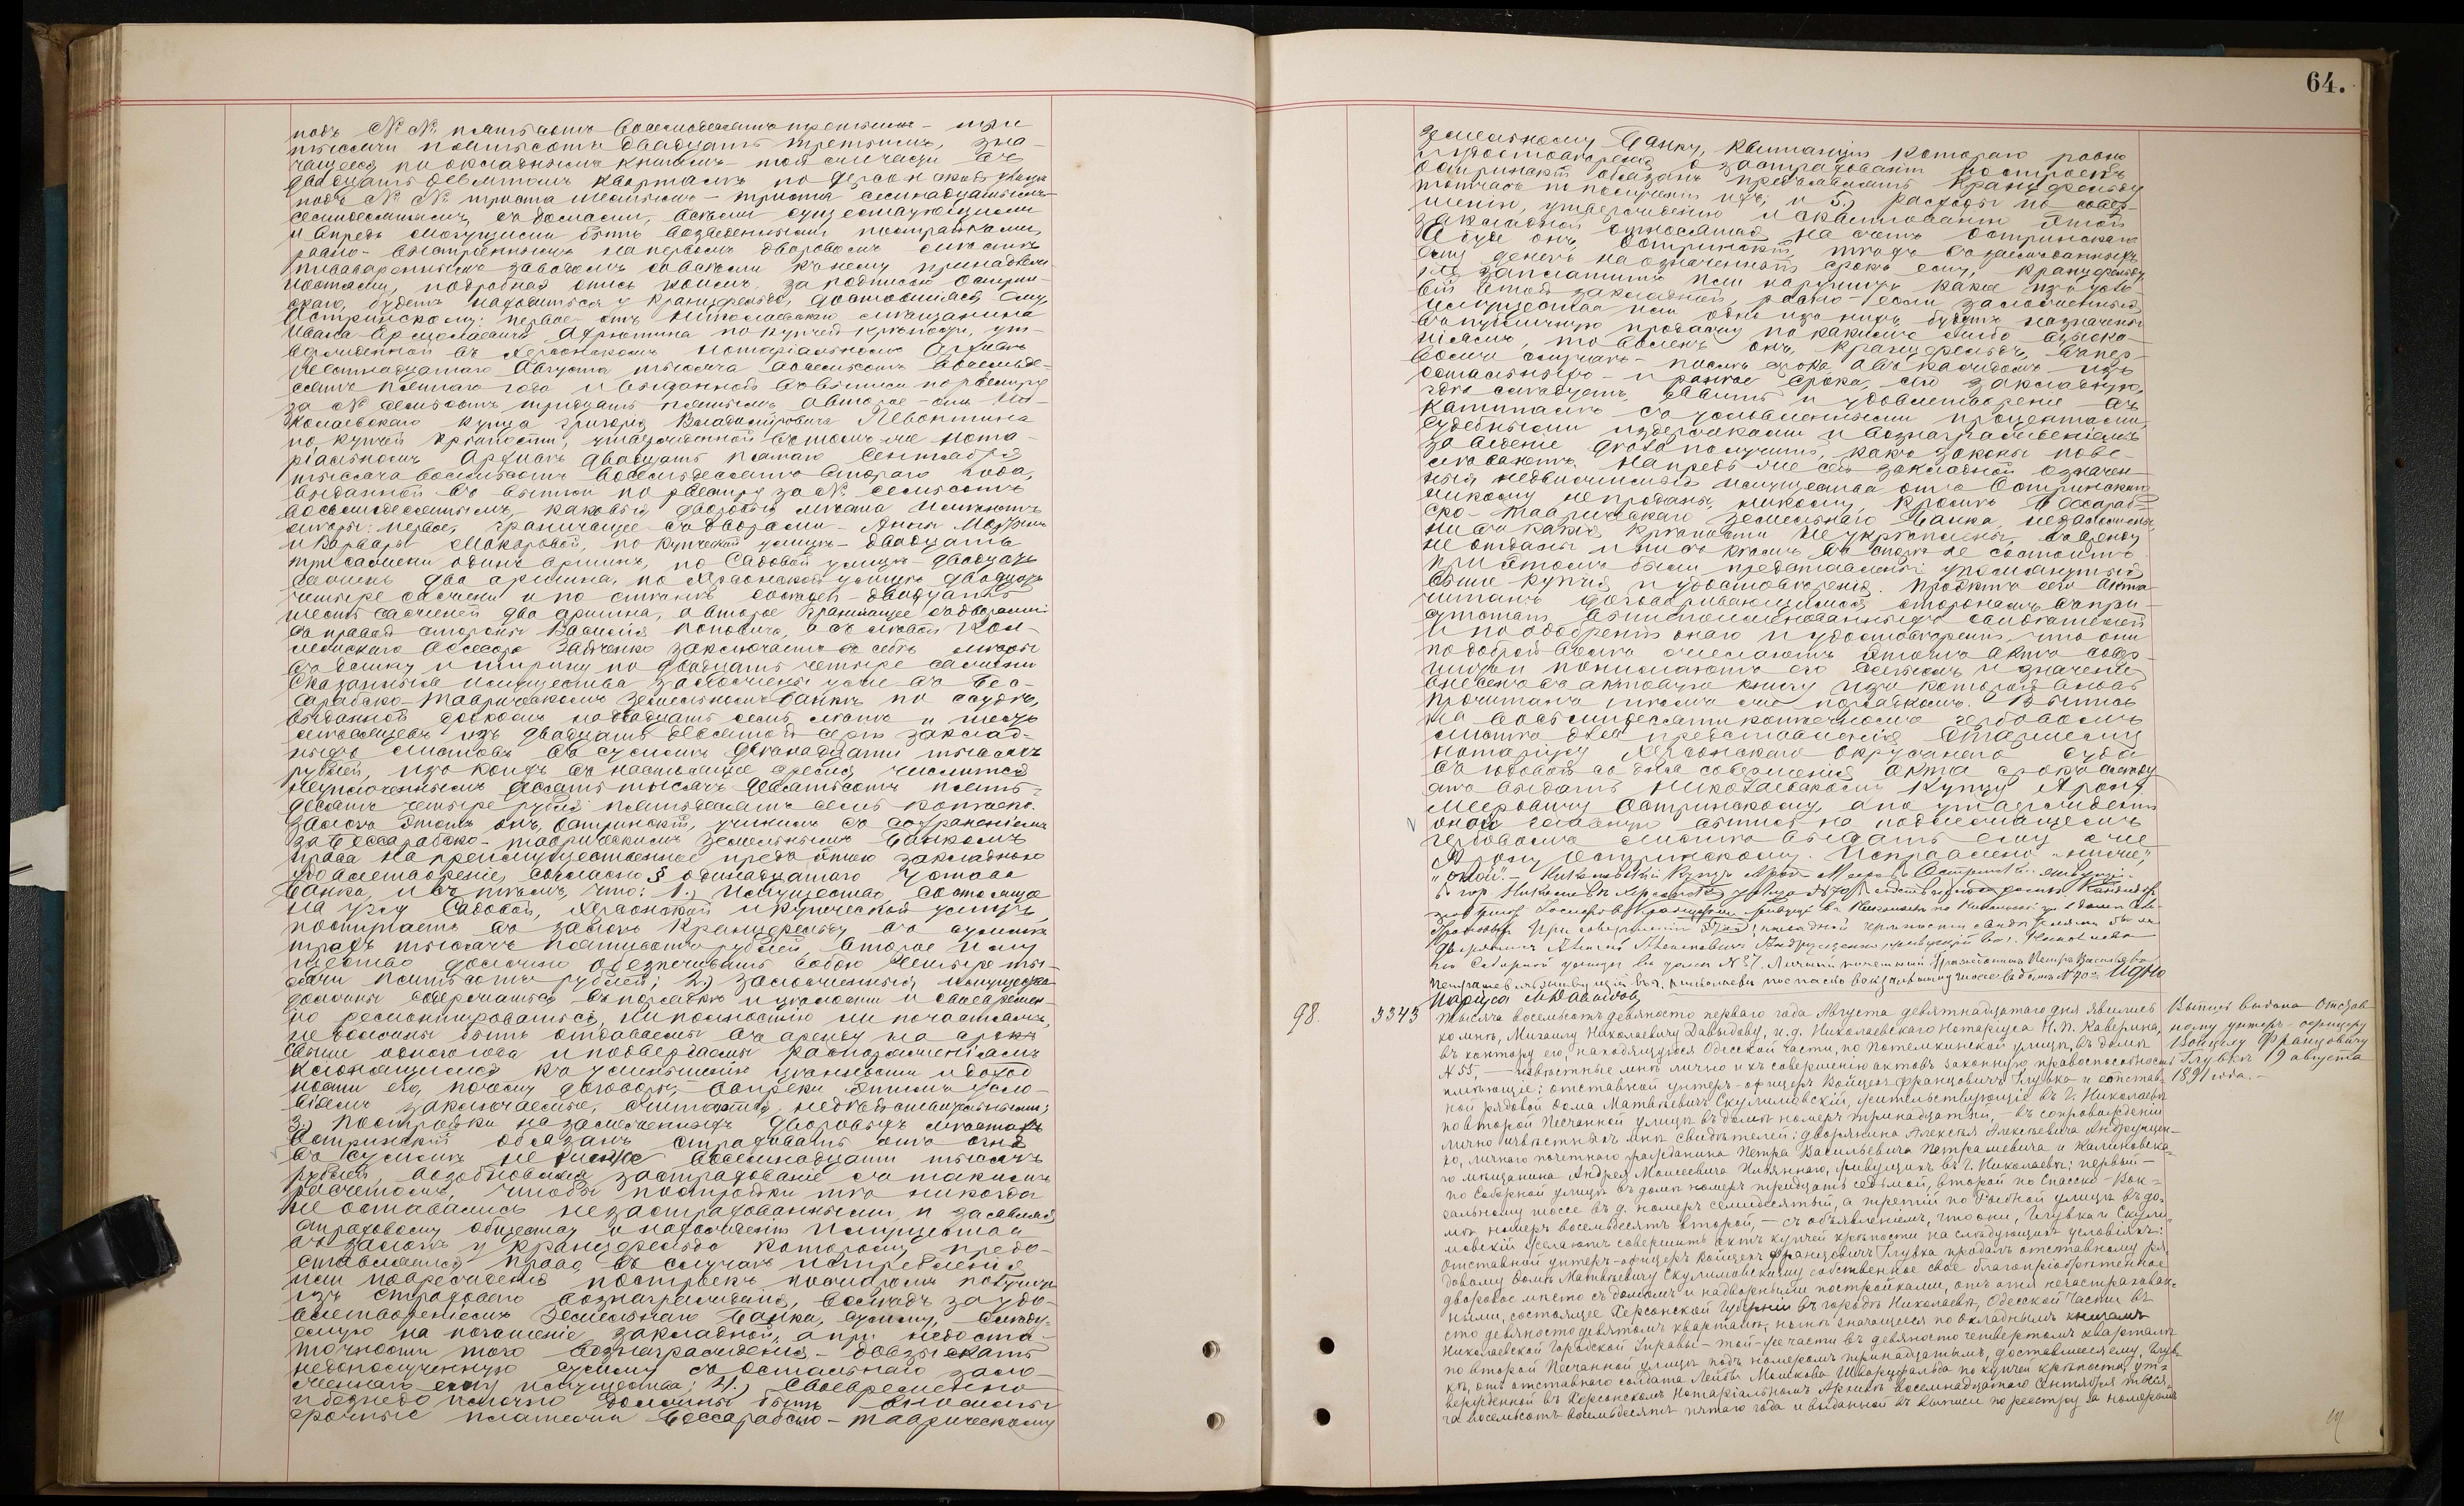 подъ №№ пятьсотъ восемьдесятъ третьимъ - три
тысячи пятьсотъ двадцать третьимъ, зна-
чащееся по окладнымъ книгамъ - той же части въ
двадцать девятомъ кварталѣ по Херсонской улицѣ
подъ №№ триста шестымъ - триста семнадцатымъ
съ домами, всѣми существующими
и впредь могущими быть возведенными постройками,
равно - выстроеннымъ на первомъ дворовомъ мѣстѣ
пивовареннымъ заводомъ со всѣми къ нему принадлеж-
ностями, подробная опись коимъ, за подписью Остри-
скаго, будетъ находиться у Кранцфельда, доставшіяся ему,
Остринскому: первое отъ Николаевскаго мѣщанина
Ивана по купчей крѣпости, ут-
вержденной въ Херсонскомъ Нотаріальномъ Архивѣ
девятнадцатаго Августа тысяча восемьсотъ восемьде-
сятъ пятаго года и выданной въ выписи по реестру
за № семьсотъ тридцать пятымъ, а второе - отъ Ни-
колаевскаго купца Григорія Владиміровича Левонтина
по купчей крѣпости, утвержденной въ томъ же Нота-
ріальномъ Архивѣ двадцать пятаго Сентября
тысяча восемьсотъ восемьдесятъ втораго года,
выданной въ выписи по реестру за № семьсотъ
восьмидесятымъ, каковыя дворовыя мѣста имѣютъ
мѣры: первое, граничащее съ дворами - Анны
и Варвары Макаровой, по Купеческой улицѣ - двадцать
три сажени одинъ аршинъ, по Садовой улицѣ - двадцать
два аршина, по Херсонской улицѣ двадцать
четыре сажени и по стѣнѣ сосѣдей - двадцать
шесть саженей два аршина, а второе граничащее съ дворами:
съ правой стороны Василія Поповича, а съ лѣвой Кол-
лежскаго Ассесора Забченко заключаетъ въ себѣ мѣры
въ длину и ширину по двадцать четыре сажени
Сказанныя имущества заложены уже въ Бес-
сарабско-Таврическомъ Земельномъ банкѣ по ссудѣ,
выданной срокомъ на двадцать семь лѣтъ и шесть
мѣсяцевъ изъ двадцать девятой серіи заклад-
ныхъ листовъ въ суммѣ двѣнадцати тысячъ
рублей, изъ коихъ въ настоящее время числится
непогашенными десять тысячъ девятьсотъ пять-
десятъ четыре рубля пятьдесятъ семь копѣекъ.
Залогъ этотъ онъ, Остринскій, учинилъ съ сохраненіемъ
за Бессарабско-Таврическимъ Земельнымъ Банкомъ
права на преимущественное предъ этою закладною
удовлетвореніе, согласно § одинадцатаго Устава
Банка, и съ тѣмъ, что: 1.) Имущество состоящее
на углу Садовой, Херсонской и Купеческой улицъ,
поступаетъ въ залогъ Кранцфельду въ суммѣ
трехъ тысячъ пятисотъ рублей, второе иму-
щество должно обезпечивать собою четыре ты-
сячи пятьсотъ рублей; 2.) заложенныя имущества
должны содержаться въ порядкѣ и цѣлости и своевремен-
но ремонтироваться, ни полностью ни по частямъ
не должны быть отдаваемы въ аренду на срокъ
свыше одного года и подвергаемы распоряженіямъ
клонящимся къ уменьшенію цѣнности и доход-
ности его, почему договоры, вопреки этимъ усло-
віямъ заключаемые, считаются недѣйствительными;
3.) Постройки на заложенныхъ дворовыхъ мѣстахъ
Остринскій обязанъ страховать отъ огня
въ суммѣ не ниже восемнадцати тысячъ
рублей, возобновляя застрахованіе съ такимъ
расчетомъ, чтобы постройки тѣ никогда
не оставались незастрахованными, и заявляя
страховому обществу о нахожденіи имущества
въ залогѣ у Кранцфельда которому предо-
ставляется право, въ случаѣ истребленія
или поврежденія построекъ пожаромъ получить
изъ страховаго вознагражденія, вслѣдъ за удо-
влетвореніемъ Земельнаго Банка, сумму, слѣду-
емую на погашеніе закладной, а при недоста-
точности того вознагражденія - довзыскать
недополученную сумму съ остальнаго зало-
женнаго ему имущества; 4.) Своевременно
и бездоимочно должны быть вносимы
срочные платежи Бессарабско-Таврическому
64.
Земельному Банку, квитанціи котораго равно
и удостовѣренія о застрахованіи построекъ
Остринскій обязанъ представлять Кранцфельду
тотчасъ по полученіи ихъ; и 5.) Расходы по совер-
шенію, утвержденію и сквитованію этой
закладной относятся на счетъ Остринскаго
А буде онъ, Остринскій, тѣхъ позаимствованныхъ
ему денегъ на означенный срокъ ему, Кранцфельду
не заплатитъ или нарушитъ какое изъ усло-
вій этой закладной, равно - если заложенныя
имущества или одно изъ нихъ будутъ назначены
въ публичную продажу по какимъ либо взыска-
ніямъ, то воленъ онъ, Кранцфельдъ, въ пер-
вомъ случаѣ - послѣ срока, а въ каждомъ изъ
остальныхъ - и ранѣе срока, сію закладную,
гдѣ слѣдуетъ, явить и удовлетвореніе въ
капиталѣ съ условленными процентами,
судебными издержками и вознагражденіемъ
за веденіе дѣла получить, какъ законы пове-
лѣваютъ. Напредь же сей закладной означен-
ныя недвижимыя имущества отъ Остринскаго
никому не проданы, никому, кромѣ Бессараб-
ско-Таврическаго Земельнаго Банка, не заложены,
ни въ какія крѣпости не укрѣплены, въ аренду
не отданы и ни съ кѣмъ въ спорѣ не состоитъ
При этомъ были представлены упомянутыя
выше купчія и удостовѣренія. Проэктъ сего акта
читанъ договаривающимся сторонамъ въ при-
сутствіи вышепоименованныхъ свидѣтелей
и по одобреніи онаго и удостовѣреніи, что они
по доброй волѣ желаютъ этотъ актъ совер-
шить и понимаютъ его смыслъ и значеніе
внесенъ въ актовую книгу изъ которой вновь
прочитанъ тѣмъ же порядкомъ. Выпись
на восьмидесятикопѣечномъ гербовомъ
листѣ для представленія Старшему
нотаріусу Херсонскаго Окружнаго Суда
въ годовой со дня совершенія акта срокъ слѣду-
етъ выдать Николаевскому купцу Арону
Мееровичу Остринскому, а по утвержденіи
оной главную выпись на подлежащемъ
гербовомъ листѣ выдать ему же
Арону Остринскому. Исправлено „ниже,"
„оной". - Николаевскій купецъ Аронъ Мееровъ Остринскій. живущій
При совершеніи закладной крѣпости свидѣтелями были
дворянинъ Алексѣй Алексѣевичъ Андрущенко живущій въ г. Николаевѣ
по Соборной улицы въ домѣ № 37. Личный почетный гражданинъ Петръ Васильевъ
Петрашевъ живущій въ г. Николаевѣ по Спасско вокзальному шоссе въ домѣ № 70. И.д. Но-
таріуса М Давыдовъ
98.
3343
Тысяча восемьсотъ девяносто перваго года Августа девятнадцатаго дня явились
ко мнѣ, Михаилу Николаевичу Давыдову, и.д. Николаевскаго Нотаріуса Н. П. Каверина,
въ контору его, находящуюся Одесской части, по Потемкинской улицѣ, въ домѣ
№ 55, - извѣстные мнѣ лично и къ совершенію актовъ законную правоспособность
имѣющіе: отставной унтеръ-офицеръ Войцехъ Францовичъ Глувка и отстав-
ной рядовой Фома Матвѣевичъ Скулимовскій, жительствующіе въ г. Николаевѣ
по второй Песчанной улицѣ въ домѣ номеръ тринадцатый, - въ сопровожденіи
лично извѣстныхъ мнѣ свидѣтелей: дворянина Алексѣя Алексѣевича Андрущен-
ко, личнаго почетнаго гражданина Петра Васильевича Петрашевича и Калиновска-
го мѣщанина Андрея Моисеевича Нивяннаго, живущихъ въ г. Николаевѣ: первый -
по Соборной улицѣ въ домѣ номеръ тридцать седьмой, второй по Спасско-Вок-
зальному шоссе въ д. номеръ семидесятый, а третій по Рыбной улицѣ въ до-
мѣ номеръ восемьдесятъ второй, - съ объявленіемъ, что они, Глувка и Скули-
мовскій желаютъ совершить актъ купчей крѣпости на слѣдующихъ условіяхъ:
отставной унтеръ-офицеръ Войцехъ Францовичъ Глувка продалъ отставному ря-
довому Фомѣ Матвѣевичу Скулимовскому собственное свое благопріобрѣтенное
дворовое мѣсто съ домомъ и надворными постройками, отъ огня незастрахован-
ными, состоящее Херсонской Губерніи въ городѣ Николаевѣ, Одесской части въ
сто девяносто девятомъ кварталѣ, нынѣ значащееся по окладнымъ книгамъ
Николаевской Городской Управы - той-же части въ девяносто четвертомъ кварталѣ
по второй Песчанной улицѣ подъ номеромъ тринадцатымъ, доставшееся ему, Глув-
кѣ, отъ отставнаго солдата Лейбы Мошкова Шварцфальда по купчей крѣпости, ут-
вержденной въ Херсонскомъ Нотаріальномъ Архивѣ восемнадцатаго Сентября тыся-
ча восемьсотъ восемьдесятъ пятаго года и выданной въ выписи по реестру за номеромъ
Выпись выдана отстав-
ному унтеръ-офицеру
Войцеху Францовичу
Глувкѣ 19 августа
1891 года. -